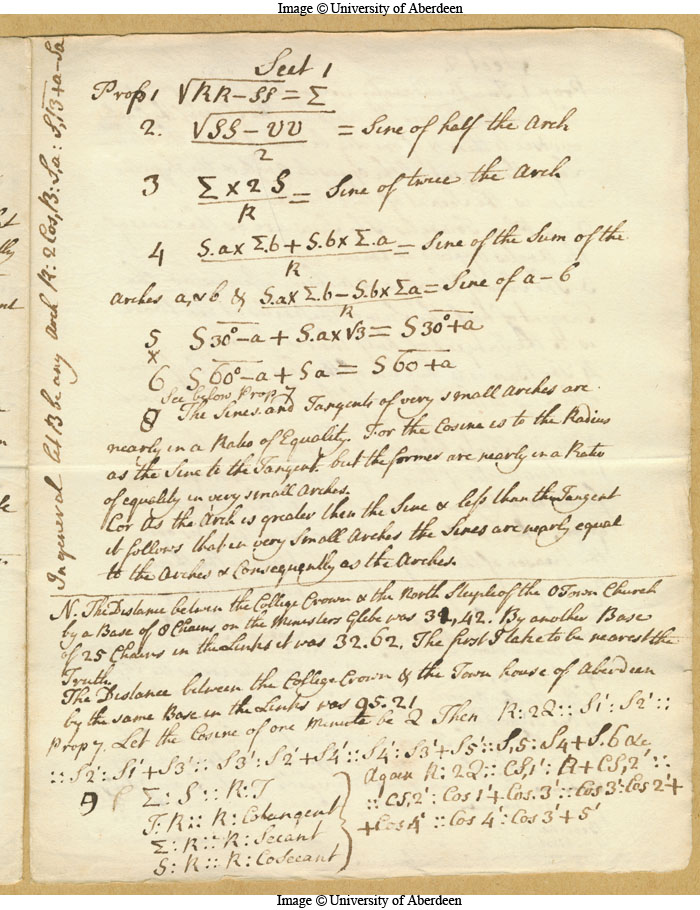 Image © University of Aberdeen
Sect 1
Prop 1 √RR – SS = Σ
2. √SS – VV / 2 = Sine of half the Arch
3 Σ × 2 S / R = Sine of twice the Arch
4 S.a × Σ.b + S.b × Σ.a / R = Sine of the Sum of the
arches a, & b & S.a × Σ.b – S.b × Σa / R = Sine of a – b
5 S 30° – a + S.a × √3 = S 30° + a
×
6 S 60° – a + S a = S 60 + a
See below Prop 7
8 The Sines and Tangents of very small Arches are
nearly in a Ratio of Equality. For the Cosine is to the Radius
as the Sine to the Tangent. but the former are nearly in a Ratio
of equality in very small Arches.
Cor As the Arch is greater then the Sine & less than the Tangent
it follows that in very Small Arches the Sines are nearly equal
to the Arches & Consequently as the Arches.
N. The Distance between the College Crown & the North Steeple of the O Town Church
by a Base of 8 Chains on the Ministers Glebe was 31,42. By another Base
of 25 Chains in the Links it was 32.62. The first I take to be nearest the
Truth.
The Distance between the College Crown & the Town house of Aberdeen
by the same Base in the Links was 95.21
Prop 7. Let the Cosine of one Minute be Q Then R : 2Q :: S1' : S2' ::
:: S2' : S1' + S3' :: S3' : S2' + S4' :: S4' : S3' + S5' :: S,5 : S4 + S.6 &c
9 Σ : S :: R : T
T : R :: R : Cotangent
Σ : R :: R : Secant
S : R :: R : CoSecant
Again R : 2Q :: CS,1' : R + CS,2' ::
:: CS,2' : Cos 1' + Cos. 3' :: Cos 3' : Cos 2' +
+ Cos 4' :: Cos 4' : Cos 3' + 5'
In general let B be any arch R : 2 Cos, B : S,a : S, B + a – Sa
Image © University of Aberdeen